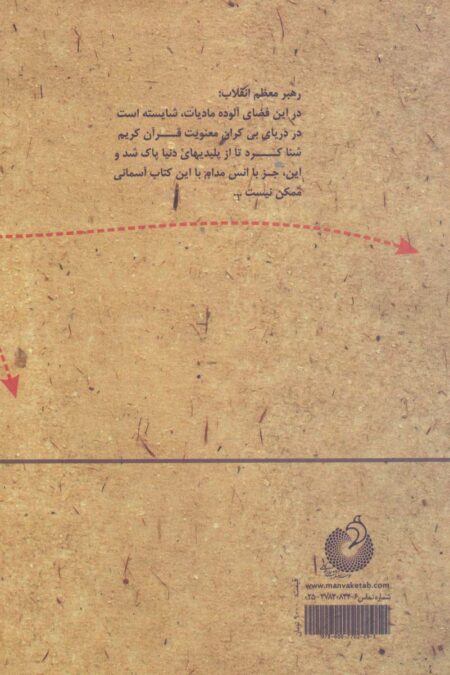 رهبر معظم انقلاب:
در این فضای آلوده مادیات، شایسته است
در دریای بی کران معنویت قرآن کریم
شنا کرد تا از پلیدیهای دنیا پاک شد و
این، جز با انس مدام با این کتاب آسمانی
ممکن نیست ..
www.manvaketab.com
شماره تماس: